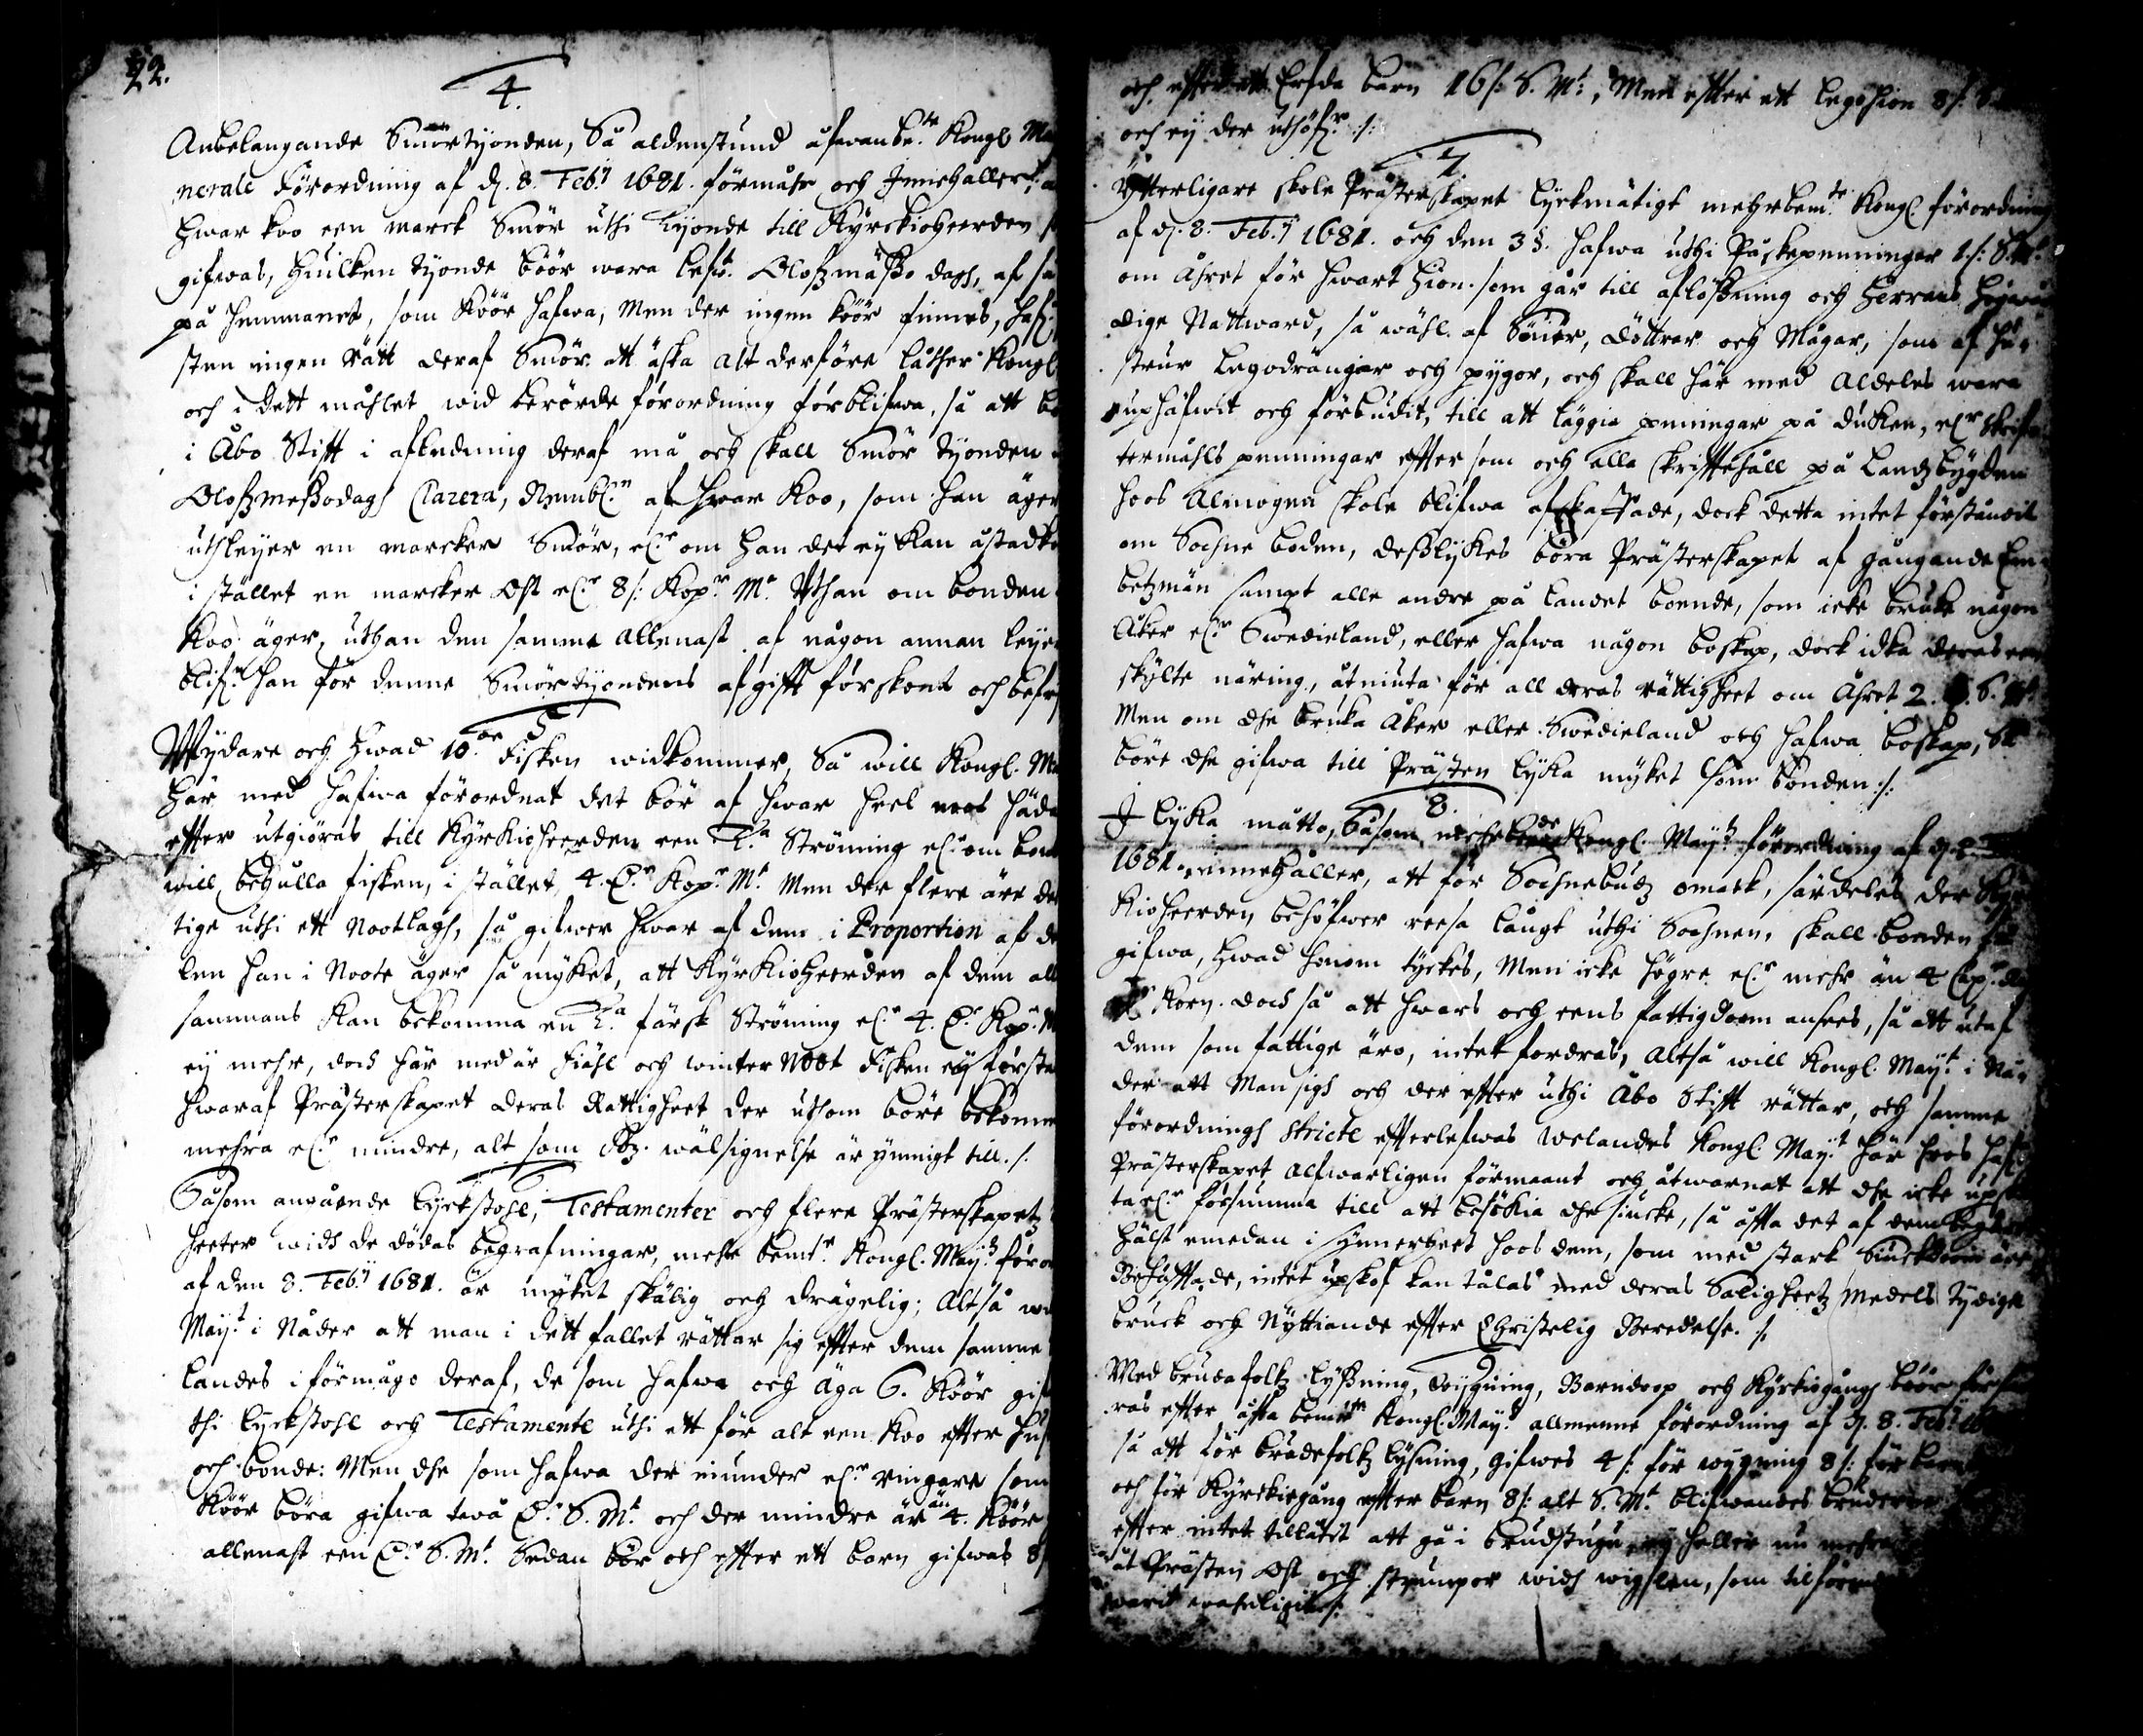 22.
4.
Anbelangande Smörtyonden, Så aldenstund åfwanbe.te Kongl Ma
nerale Förordning af d. 8. Feb.y 1681. förmåhr och Innehåller,
hwar koo een marck Smör uthi Tyonde till Kyrckioheerden
gifwas, huilken tyonde böör wara Oloffzmässo dagh, af så
på hemmanet, som Köör hafwa, Men der ingen köör finnes, haf.
sten ingen rätt deraf Smör att äska alt derföre låther Kongl
och i dett måhlet wid berörde förordning förblifwa, så att bo
i Åbo Stift i afledning deraf må och skall Smör tyonden
Oloffzmessodagh Clarera, Nembl.n af hwar Koo, som han äger
uthleyer en marcker Smör, el.r om han det ey kan åstadko
i stället en marcker Ost el.r 8/: Kop.r M.t Uthan om bonden
Koo äger, uthan den samma allenast af någon annan leyer
blif.r han för denne Smörtyondens afgifft förskont och befry
5
Wydare och hwad 10.de Fisken widkommer, Så will Kongl. Ma
här med hafwa förordnat det bör af hwar heel noot häda
effter utgiöras till Kyrkioheerden een T.a Strömming el.r om bond
will behålla fisken, i stället 4. D.r Kop.r M.t Men der flere äre de
tige uthi ett Nootlagh, så gifwer hwar af dem i Proportion af de
len han i Noote äger så myket, att Kyrkioheerden af dem all
sammans kan bekomma en T.a färsk Strömming el.r 4. D.r Kop.r M
ey mehr, doch här med är Fiähl och winter Noot Fisken ey förstå
hwaraf Prästerskapet deras Rättigheet der uthom böre bekomm
mehra el.r mindre, alt som Gudz wälsignelse är ymnigt till. /.
6
Såsom angående Lyckstohl, Testamenter och flere Prästerskapetz
heeter widh de dödas begrafningar, mehr bem.te Kongl. May.tz föror
af den 8. Feb.y 1681. är myket skälig och drägelig; Altså wi
May.t i Nåder att man i dett fallet rättar sig effter dem samme
landes i förmågo deraf, de som hafwa och äga 6. Köör gif
thi Lyckstohl och Testamente uthi ett för alt een Koo effter Hus
och bonde: Men dhe som hafwa der munder el.r ringare som
Köör böra gifwa twå D.r S.M.t och der mindre är än 4. Köör
allenast een D.r S.M.t Sedan bör och effter ett barn gifwas 8/
och effter ett Erfda barn 16/: S.M.t, Men effter ett legohion 8/: S.
och ey der uthöf.r :/:
7.
Ytterligare skole Prästerskapet lyckmätigt mehrbem.te Kongl. förordning
af d. 8. Feb.y 1681. och den 3§. hafwa uthi Påskepenningar 1./: S.M.t
om Åhret för hwart hion som går till aflössning och Herrans Högwär
dige Nattward, så wähl af Söner, döttrar och Mågar, som af hu-
strur Legodrängiar och pygor, och skall här med aldeles wara
uphäfwit och förbudit, till att läggia penningar på duken, el.r skriff
termåhls penningar effter som och alla skriftehåll på Landzbygden
hoos Almogen skole blifwa afskaffade, dock detta intet förståendit
om Sochne boden, desslykes böra Prästerskapet af gångande Em-
betzmän sampt alle andre på landet boende, som icke bruke någon
Åker el.r Swedieland, eller hafwa någon boskap, dock idka deras en
skylte näring, åtniuta för all deras rättigheet om Åhret 2. S. M.t
Men om dhe bruka åker eller Swedieland och hafwa boskap, Så
böre dhe gifwa till Prästen lyka myket som bonden :/:
8.
I lyka måtto, såsom mehrbem.de Kongl. May.tz förordning af d. 8
1681. innehåller, att för Sochnebudz omack, särdeles der Kyr
kioheerden behöfwer reesa långt uthi Sochnen, skall bonden
gifwa, hwad honom tyckes, Men icke högre el.r mehr än 4 Cap.r
Korn. doch så att hwars och eens fattigdoom ansees, så att utaf
dem som fattige äro, intet fordras, Altså will Kongl. May.t i Nå-
der att Man sigh och der effter uthi Åbo Stift rättar, och samme
förordningh stricte effterlefwas welandes Kongl. May.t här hoos haf
Prästerskapet alfwarligen förmaant och åtwarnat att dhe icke upsk
ta el.r försumma till att besökia dhe siucke, så offta det af dem begär
hälst emedan i Synnerheet hoos dem, som med stark Siuckdoom äre
Behäfftade, intet upskof kan tålas med deras Saligheetz Medels tydige
bruck och Nyttiande effter Christelig Beredelse. /.
9
Med brudafolkz lyssning, Wygning, Barndoop och Kyrkiogångh böör
ras effter offta bem.te Kongl. May.tz allmenne förordning af d. 8. Feb.y
så att för brudefolkz lysning, gifwes 4/: för wygning 8/: för barn
och för Kyrckiogång effter barn 8/: alt S.M.t blifwandes bruderne
effter intet tillåtit att gå i brudstugu, ey heller nu mehra
åt Prästen Ost och strumpor widh wigslen, som tilför
warit wanligit /: